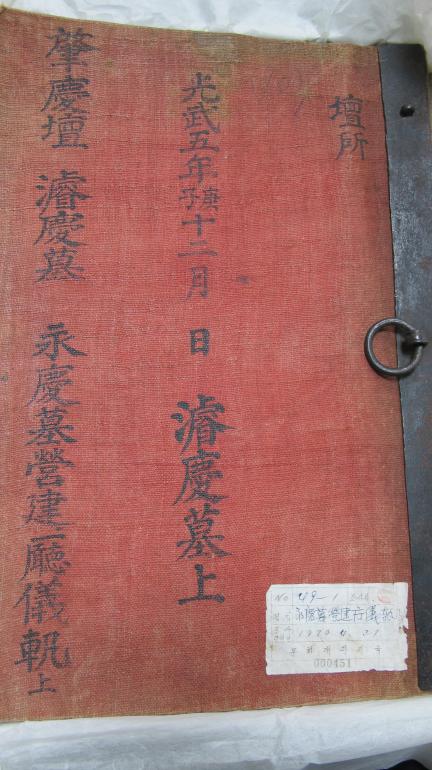 壇所
光武五年庚子十二月 日 濬慶墓上
肇慶壇 濬慶墓 永慶墓營建廳儀軌 上
No 49-1
永慶墓營建庁儀軌
000451